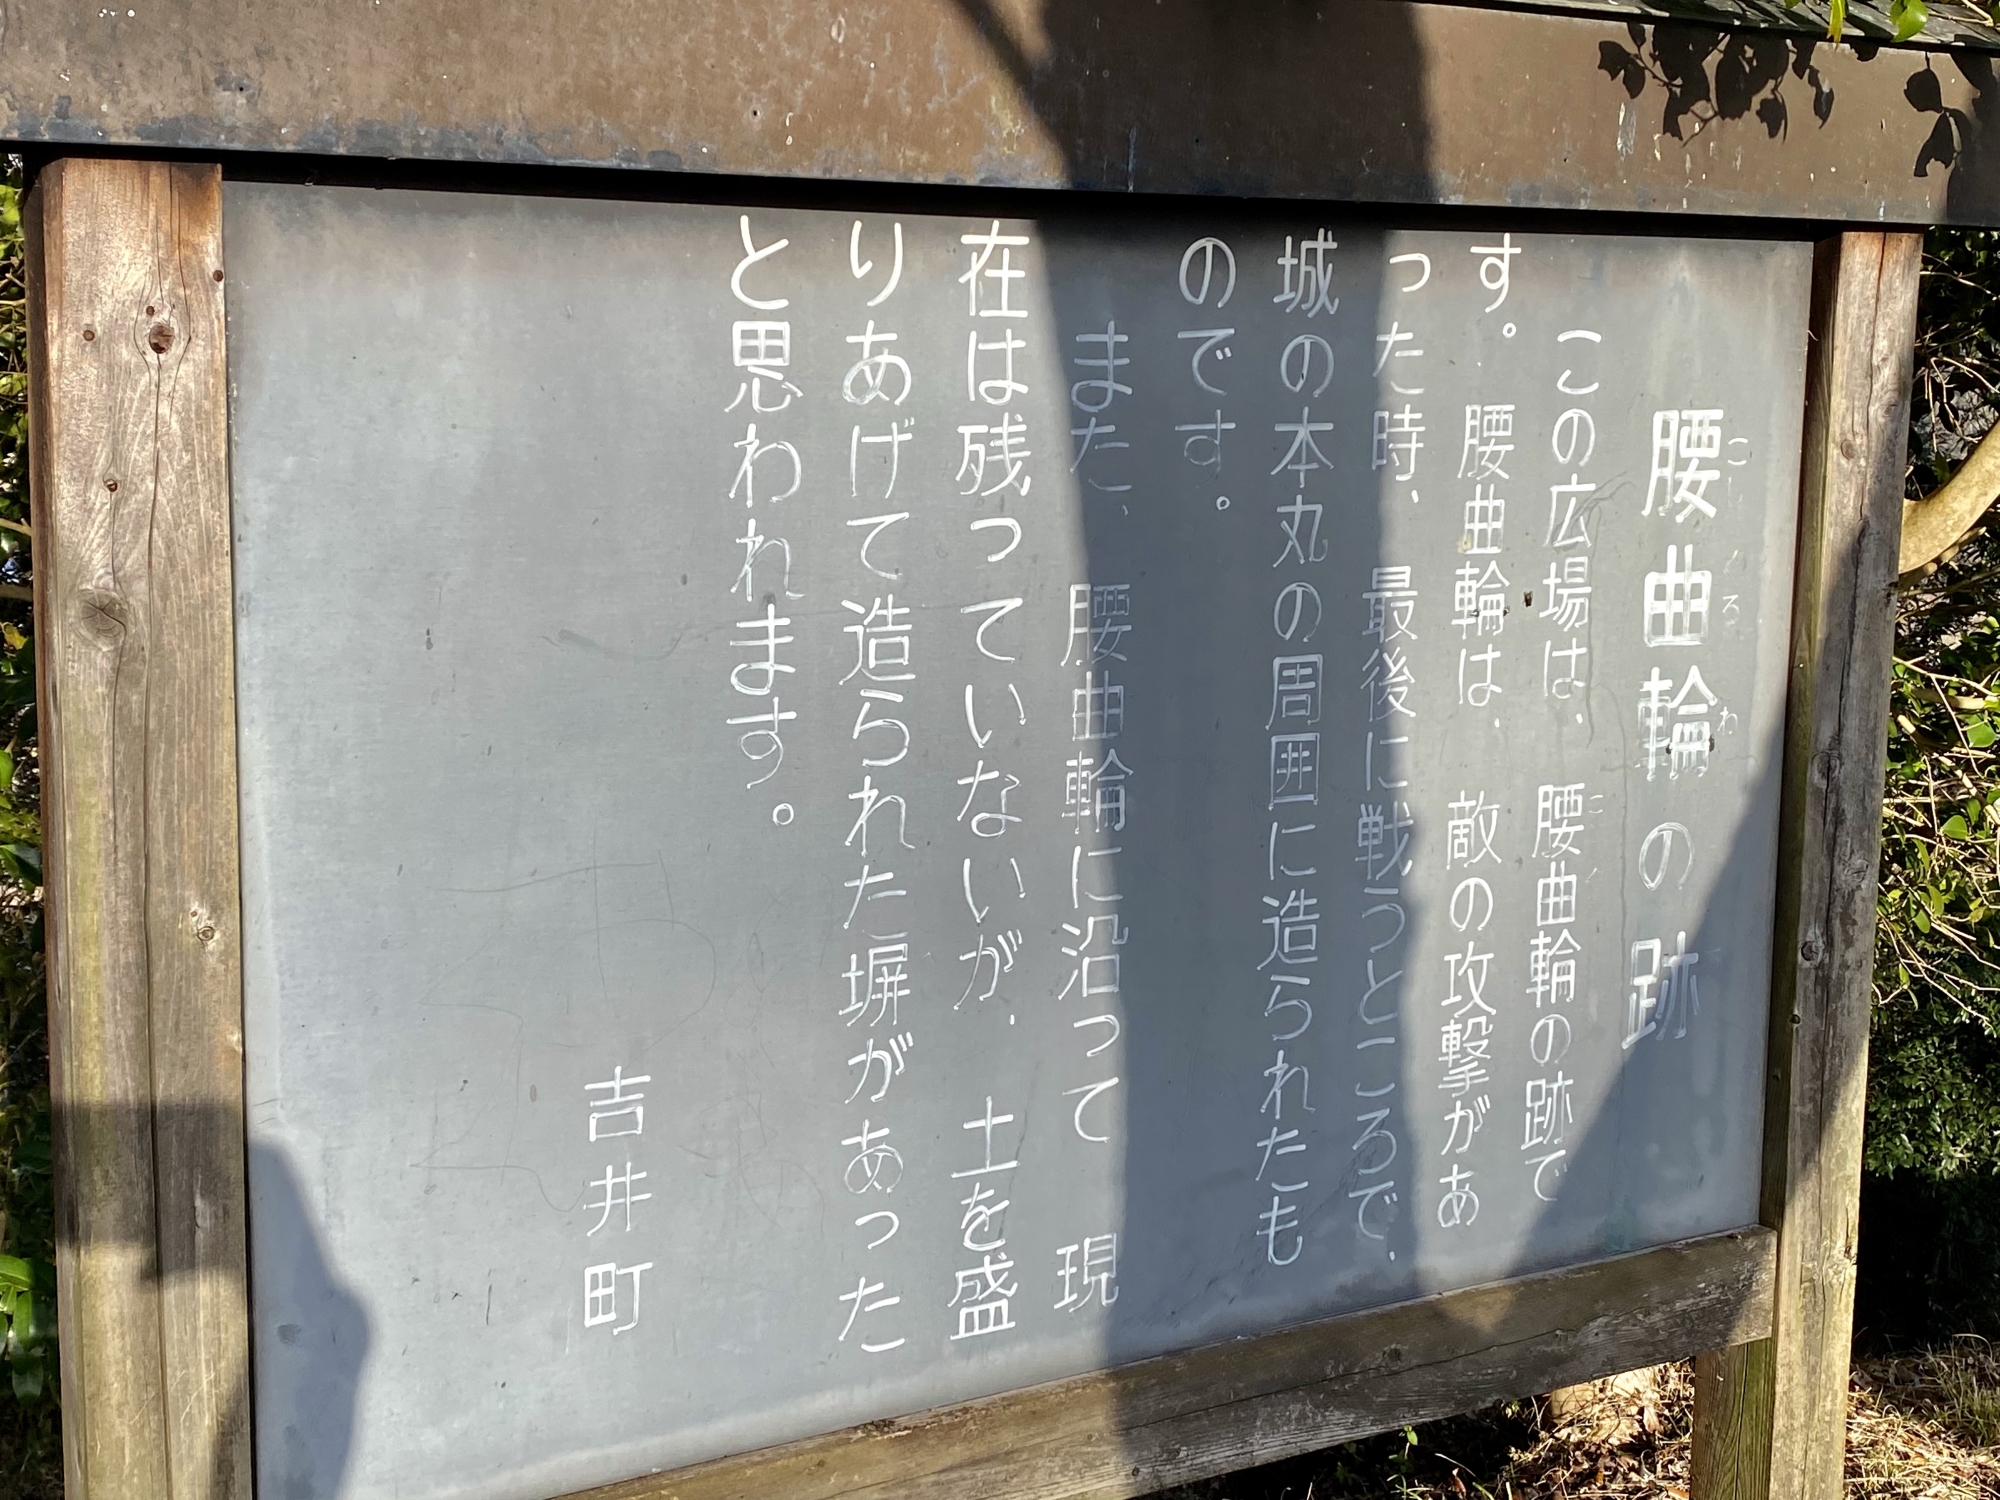 腰曲輪の跡
この広場は、腰曲輪の跡で
す。腰曲輪は、敵の攻撃があ
った時、最後に戦うところで、
城の本丸の周囲に造られたも
のです。
また、腰曲輪に沿って現
在は残っていないが、土を盛
りあげて造られた塀があった
と思われます。
吉井町